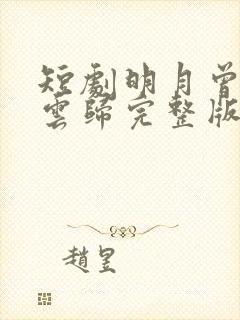 短劇明月曾
雲歸完整版
趙昱